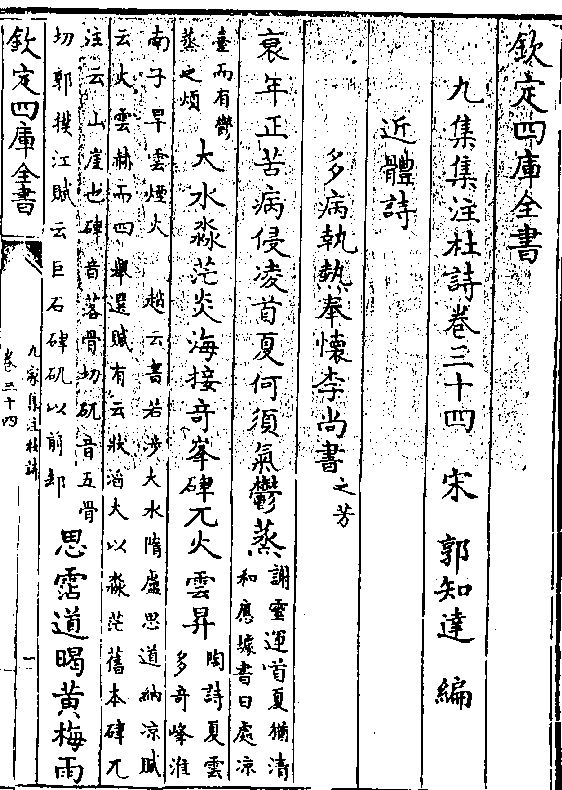 欽定四庫全書
九集集注杜詩卷三十四 宋 郭知達 編
近體詩
多病執熱奉懷李尚書之芳
衰年正苦病侵凌首夏何須氣鬱蒸謝靈運首夏猶清
和應璩書曰處凉
臺而有鬱
蒸之煩大水淼茫炎海接奇峯硉兀火雲昇陶詩夏雲
多奇峰淮
南子旱雲煙火 趙云書若步大水隋盧思道納凉賦
云火雲赫而四舉選賦有云狀滔大以淼茫舊本硉兀
注云山崖也硉音落骨切矹音五骨
切郭撲江賦云巨石硉矹以前却思霑道暍黄梅雨
欽定四庫全書
九家集注杜詩
卷三十四
一